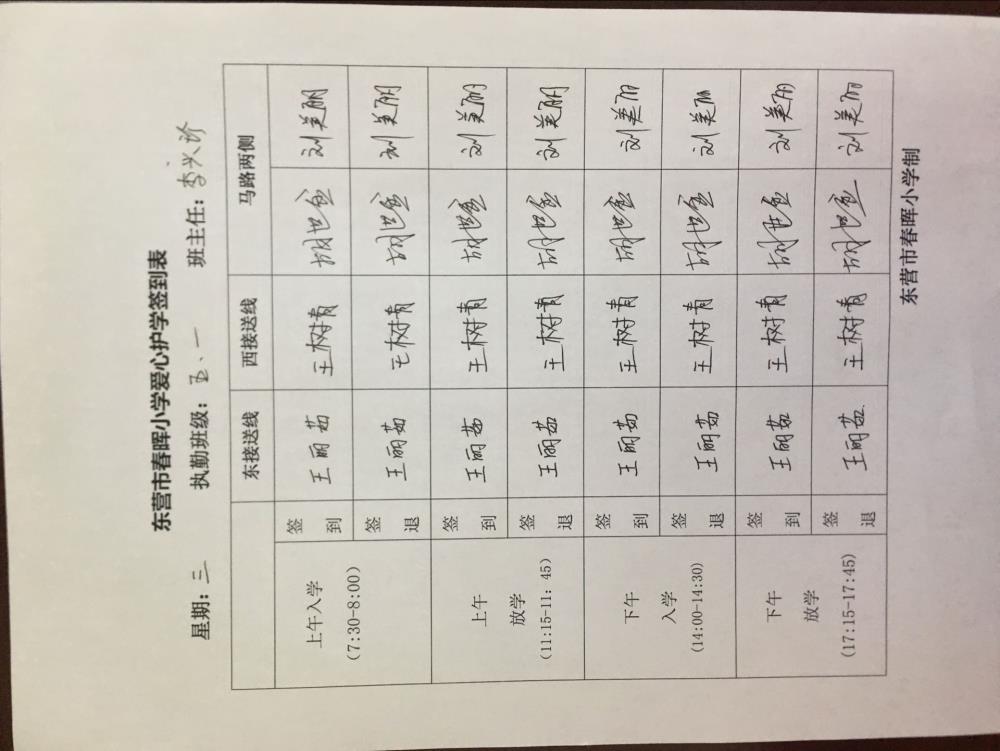 东营市春晖小学爱心护学签到表
星期：三 执勤班级：五、一 班主任：李兴珍
东接送线 西接送线 马路两侧
上午入学（7:30-8:00） 签到 王丽茹 王树青 胡世金 刘美丽
签退 王丽茹 王树青 胡世金 刘美丽
上午放学（11:15-11：45） 签到 王丽茹 王树青 胡世金 刘美丽
签退 王丽茹 王树青 胡世金 刘美丽
下午入学（14:00-14:30） 签到 王丽茹 王树青 胡世金 刘美丽
签退 王丽茹 王树青 胡世金 刘美丽
下午放学（17:15-17:45） 签到 王丽茹 王树青 胡世金 刘美丽
签退 王丽茹 王树青 胡世金 刘美丽
东营市春晖小学制